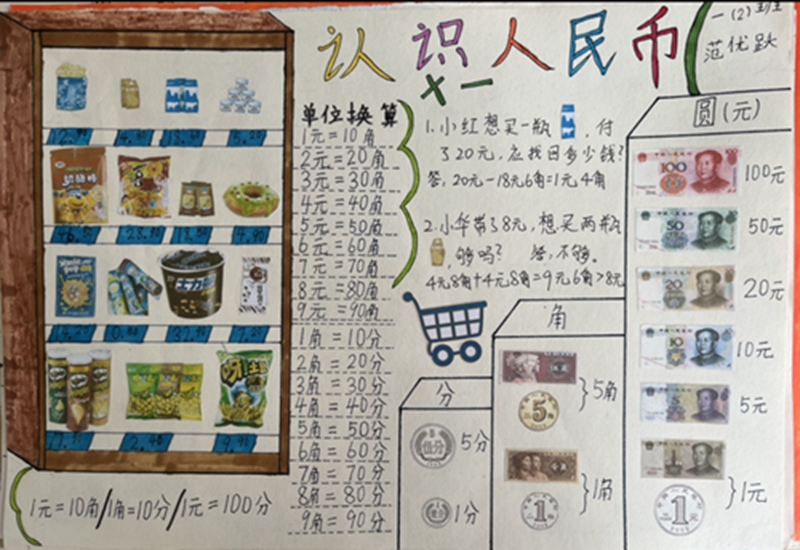 认识人民币
一(2)班
范优跃
单位换算
1元=10角
2元=20角
3元=30角
4元=40角
5元=50角
6元=60角
7元=70角
8元=80角
9元=90角
1角=10分
2角=20分
3角=30分
4角=40分
5角=50分
6角=60分
7角=70分
8角=80分
9角=90分
1.小红想买一瓶 ,付
了20元,应找回多少钱?
答:20元-18元6角=1元4角
2.小华带了8元,想买两瓶
,够吗? 答:不够。
4元8角+4元8角=9元6角>8元
圆(元)
100元
50元
20元
10元
5元
1元
角
5角
1角
分
5分
1分
1元=10角/1角=10分/1元=100分
4.80
18.60
5.20
28.80
18.80
4.90
2.40
9.90